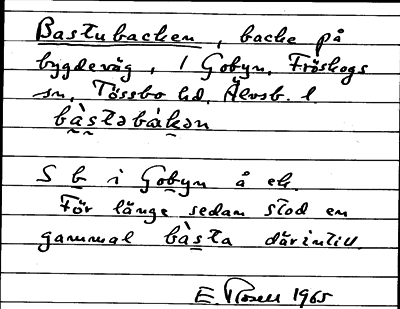 Bastubacken, backe på
bygdeväg, i Gobyn, Fröskogs
sn, Tössbo hd, Älvsb. l
bàstəbàkən

S b i Gobyn å ek.
För länge sedan stod en
gammal bàsta därintill.

E. Rosell 1965